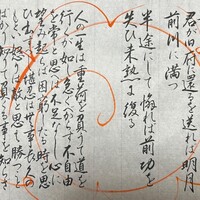 君が旧府に還るを送れば明月
前川に満つ
半途にして惰れば前功を
失ひ未熟に復る
人の一生は重荷を負て道を
行くが如し急ぐからず不自由
を常と思へば不足なし心に
望み起らば困窮したる時を思
ひ出すべし堪忍は無事長
怒は敵と思へ勝つこと
事を知らざ